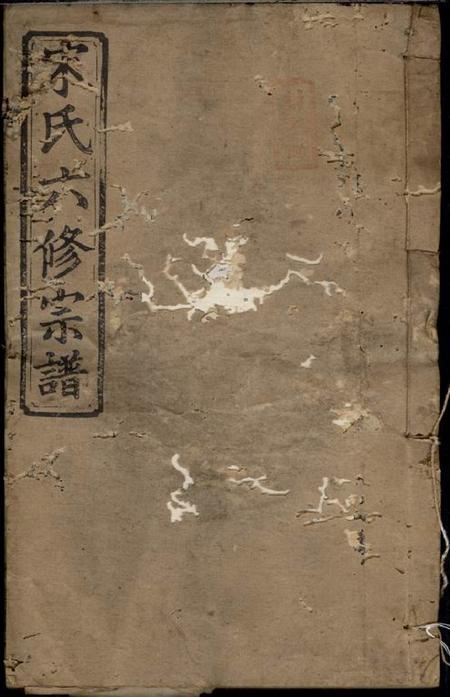 宋氏六修宗譜